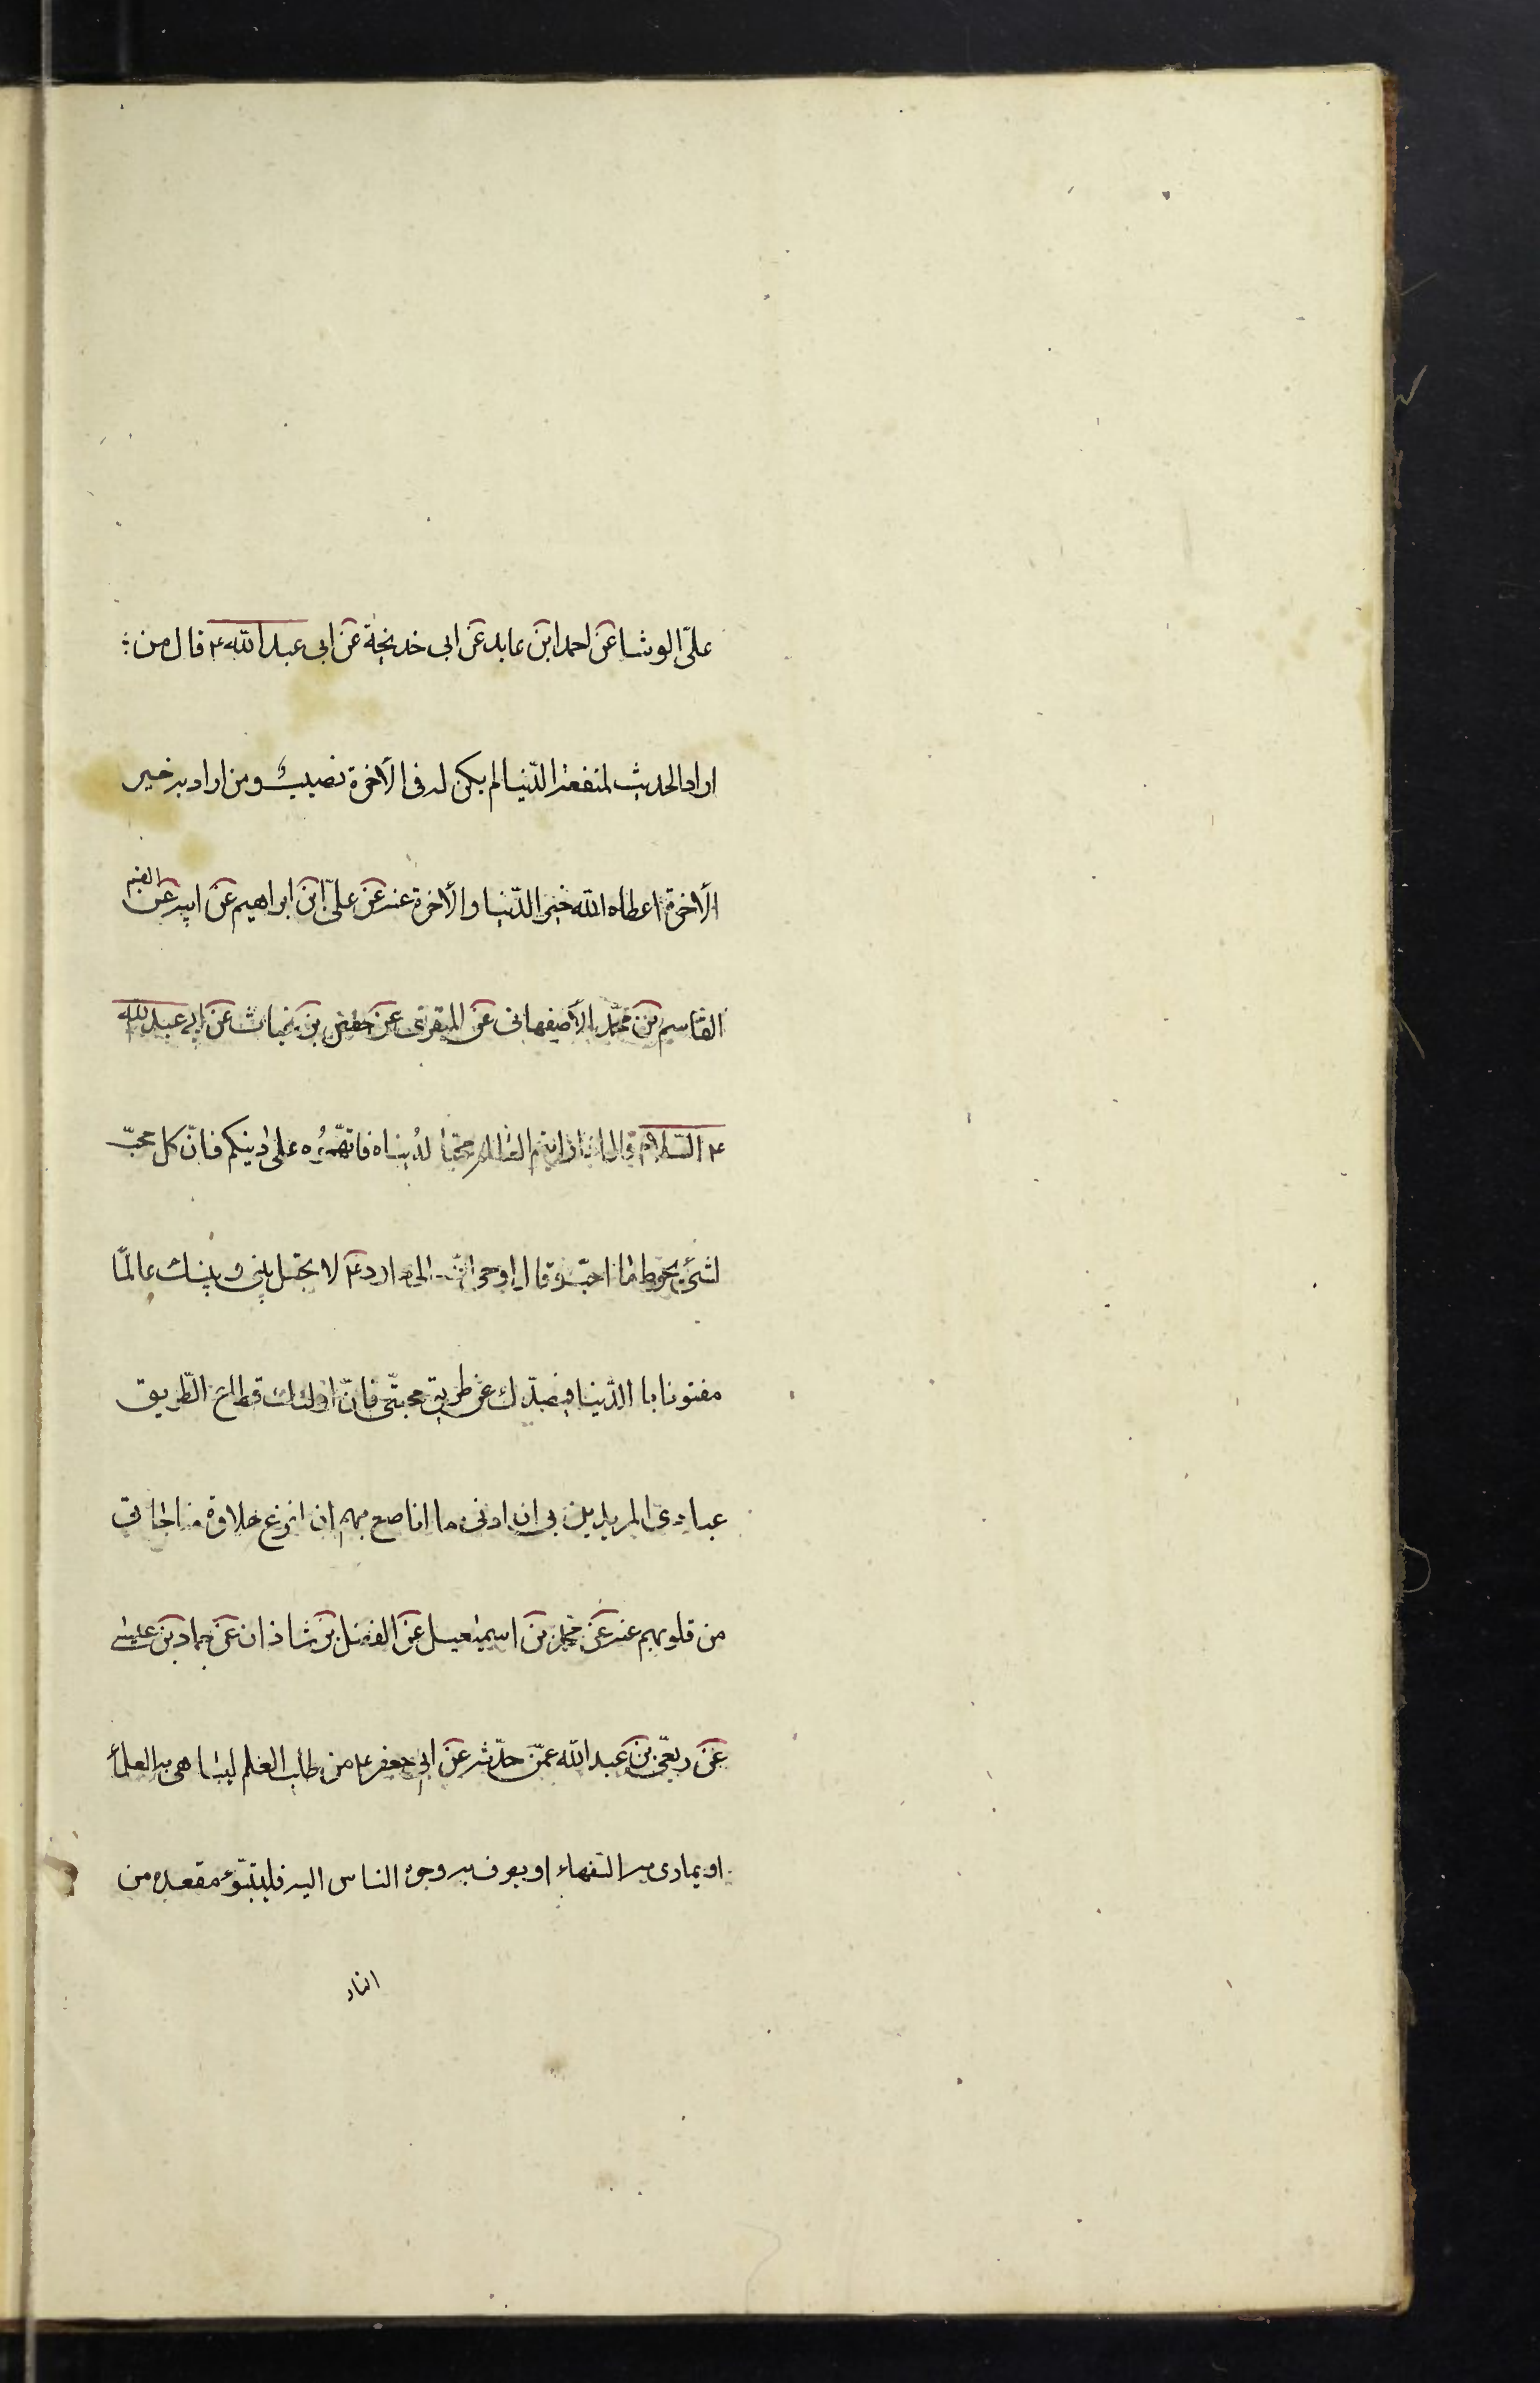 علىّ الوشا عن احمد ابن عايد عن ابى خديجة عن ابى عبد الله ع قال من
اراد الحديث لمنفعة الدّنيا لم يكن له فى الاخرة نصيب ومن اراد به خير
الاخرة اعطاه الله خير الدّنيا والاخرة عنه عن علىّ ابن ابراهيم عن ابيه عن
القاسم بن محمّد الاصفهانى عن المنقرى عن حفص بن غياث عن ابى عبد الله
ع السّلام قال اذا رايتم العالم محبّا لدنياه فاتهّموه على دينكم فانّ كل محبّ
لشئ يحوط ما احبّ وقال اوحى الله الى داود ع لا تجعل بينى وبينك عالمًا
مفتونا با الدّنيا فيصدّك عن طريق محبتّى فانّ اولئك قطاع الطّريق
عبادى المريدين بى ان ادنى ما انا صنع بهم ان انزع حلاوة مناجاتى
من قلوبهم عنه عن محمّد بن اسمعيل عن الفضل بن شاذان عن حماد بن عيسى
عن ربعىّ بن عبد الله عمّن حدّثه عن ابى جعفر ع من طلب العلم ليباهى به العلمآ
او يمارى به السّفهاء او يصرف به وجوه الناس اليه فليتبّوء مقعده من
النار